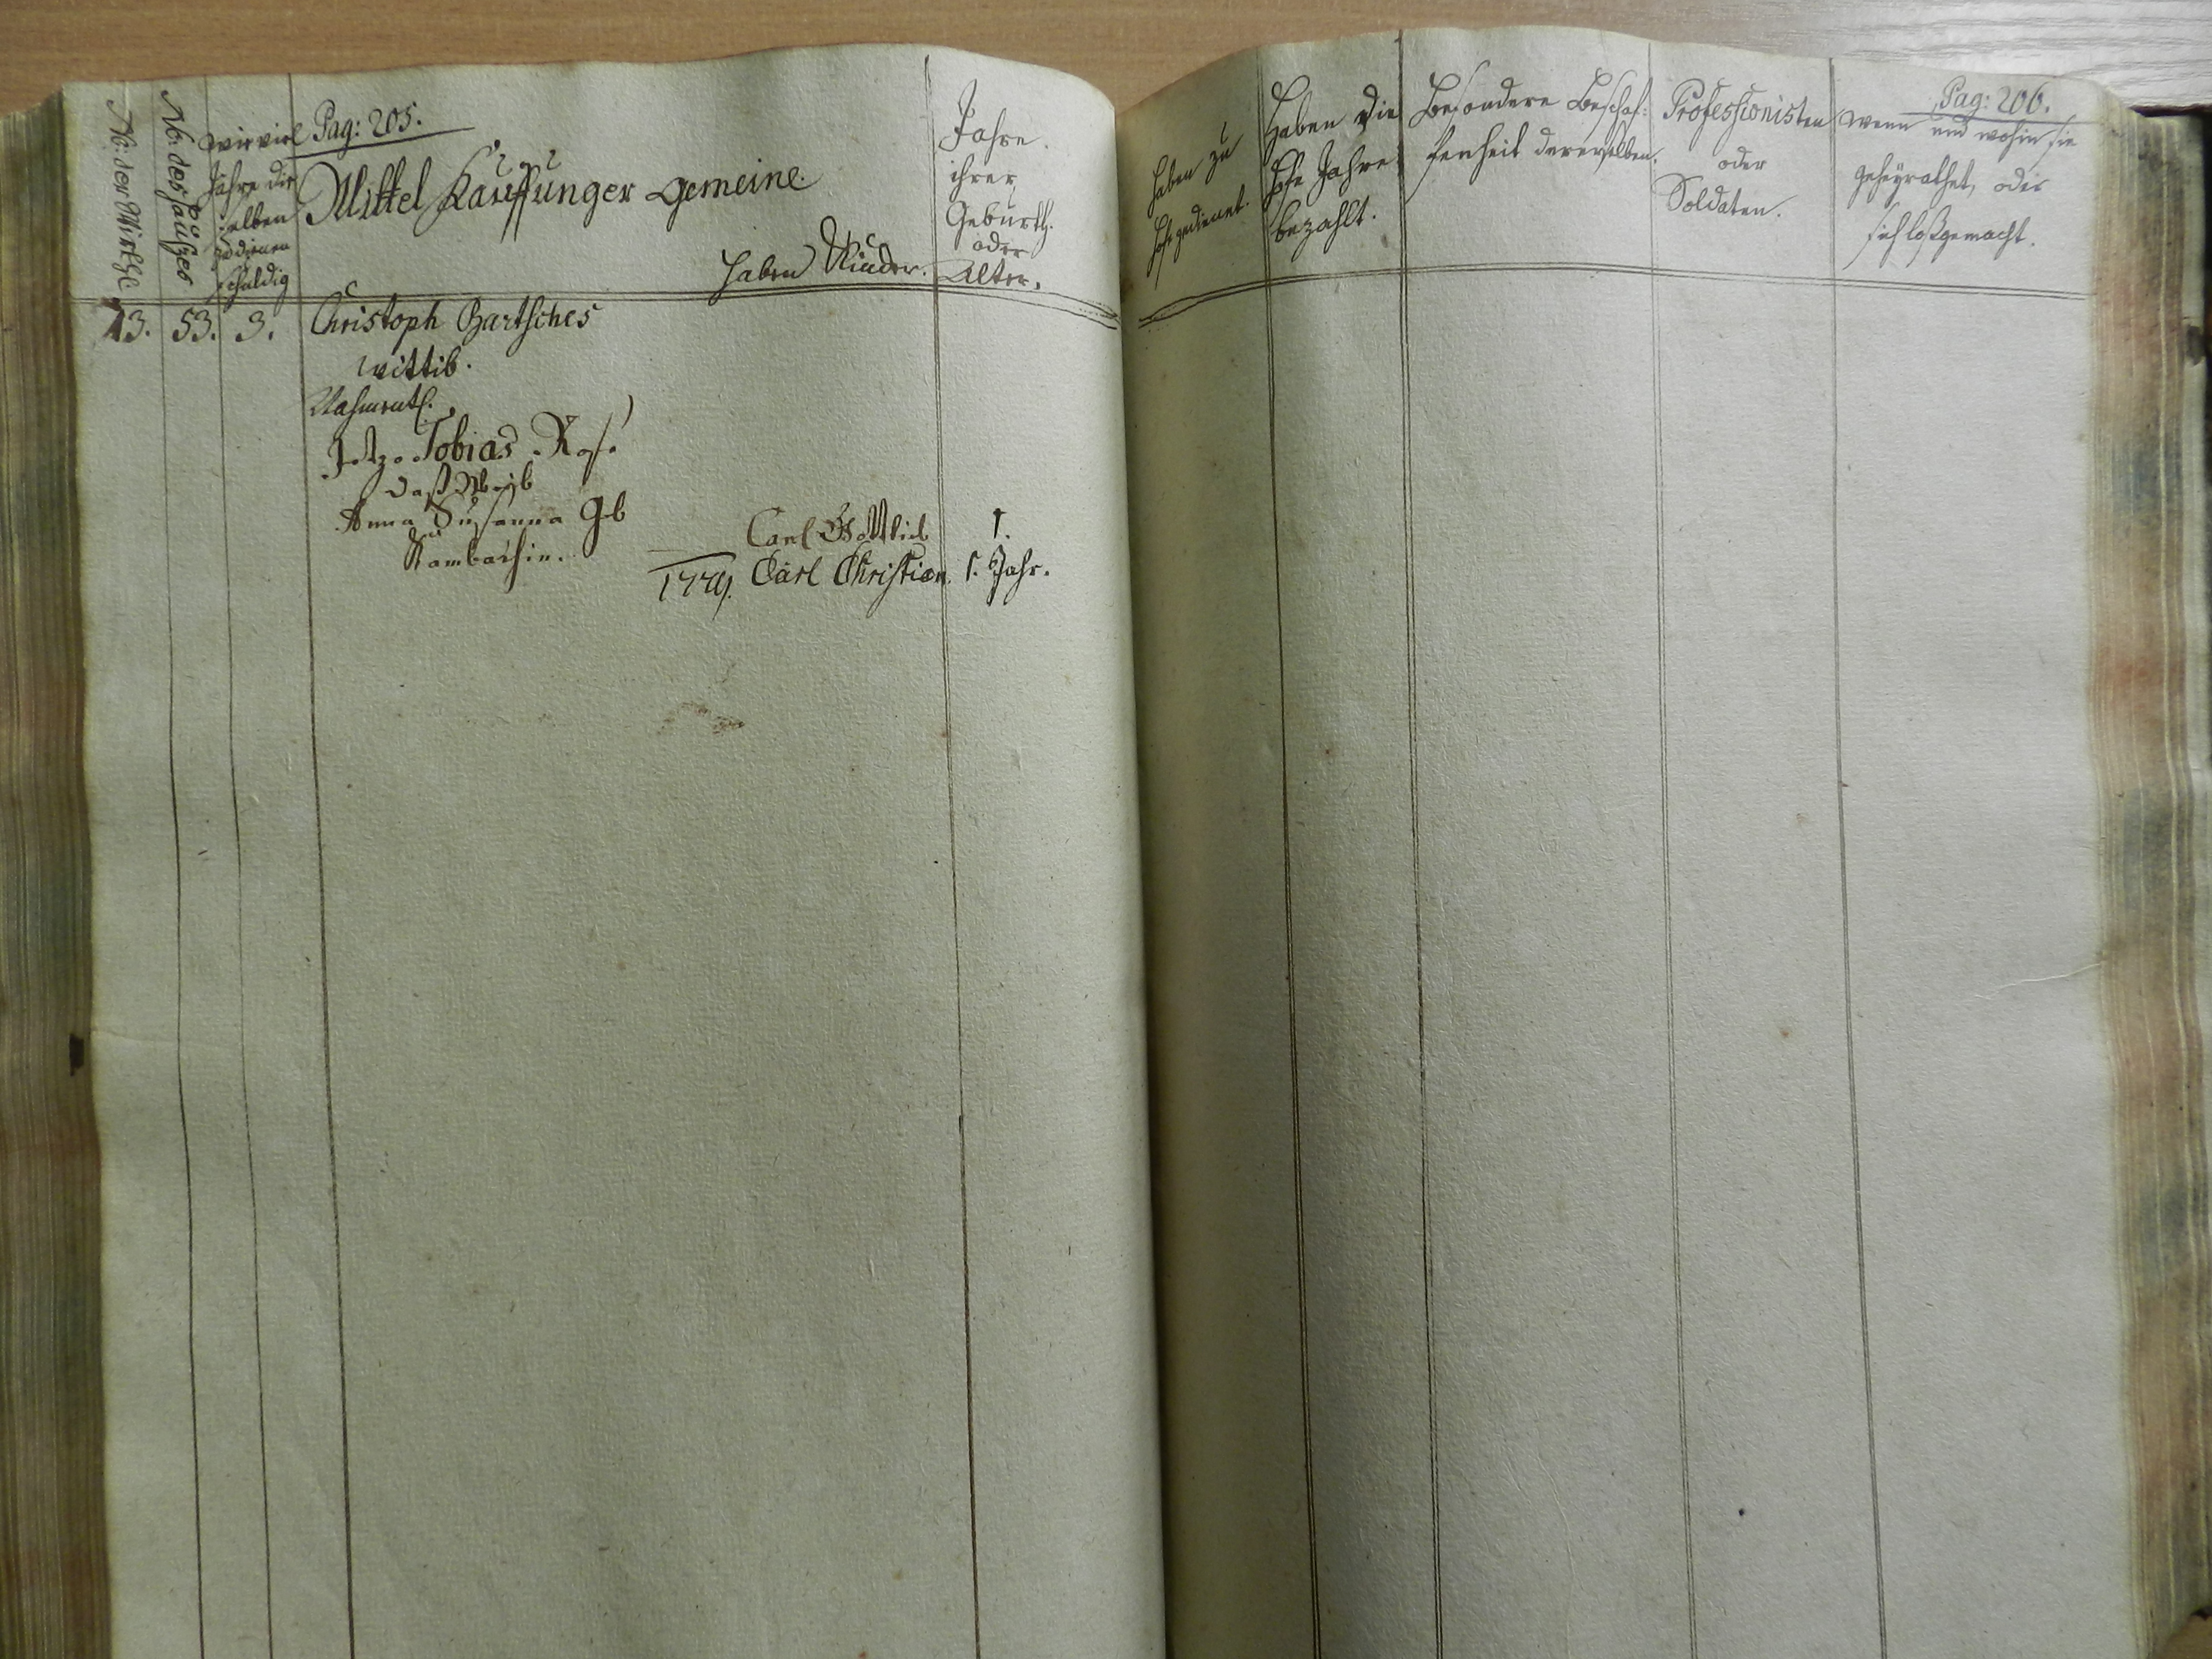 No: der Wirthe
No: des Hauses
wie viel
Jahre die
selben
zu dienen
schuldig
Pag: 205.
Mittel Kauffunger Gemeine.
haben Kinder.
Jahre
ihrer
Geburth.
oder
Alter.
13. 53. 3. Christoph Bartsches
wittib.
Nahmentl.
Jetzo Tobias
daß Weib
Anna Susanna Geb
Rambachin.
Carl Gottlieb 1.
1779. Carl Christian. 1. Jahr.
Pag: 206.
haben zu
Hofe gedienet.
Haben die
Hofe Jahre
bezahlt.
Besondere Beschaf:
fenheit dererselben.
Professionisten
oder
Soldaten.
wenn und wohin sie
geheyrathet, oder
sich loßgemacht.